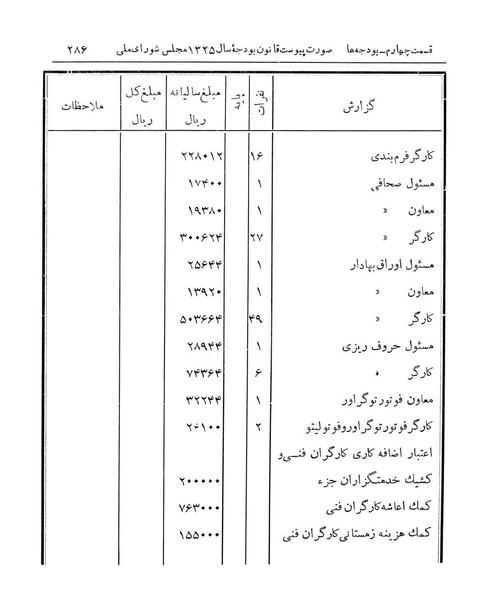 قسمت چهارم ـ بودجه‌ها صورت پیوست قانون بودجهٔ سال ۱۳۲۵ مجلس شورای ملی ۲۸۶
گزارش نفرات پایه مبلغ سالیانه ریال مبلغ کل ریال ملاحظات
کارگر فرم بندی ۱۶ ۲۲۸۰۱۲
مسئول صحافی ۱ ۱۷۴۰۰
معاون » ۱ ۱۹۳۸۰
کارگر » ۲۷ ۳۰۰۶۲۴
مسئول اوراق بهادار ۱ ۲۵۶۴۴
معاون » ۱ ۱۳۹۲۰
کارگر » ۴۹ ۵۰۳۶۶۴
مسئول حروف ریزی ۱ ۲۸۹۴۴
کارگر » ۶ ۷۴۳۶۴
معاون فوتورتوگراور ۱ ۳۲۲۴۴
کارگر فوتورتوگراور و فوتولیتو ۲ ۲۶۱۰۰
اعتبار اضافه کاری کارگران فنی و
کشیک خدمتگزاران جزء ۲۰۰۰۰۰
کمک اعاشه کارگران فنی ۷۶۳۰۰۰
کمک هزینه زمستانی کارگران فنی ۱۵۵۰۰۰